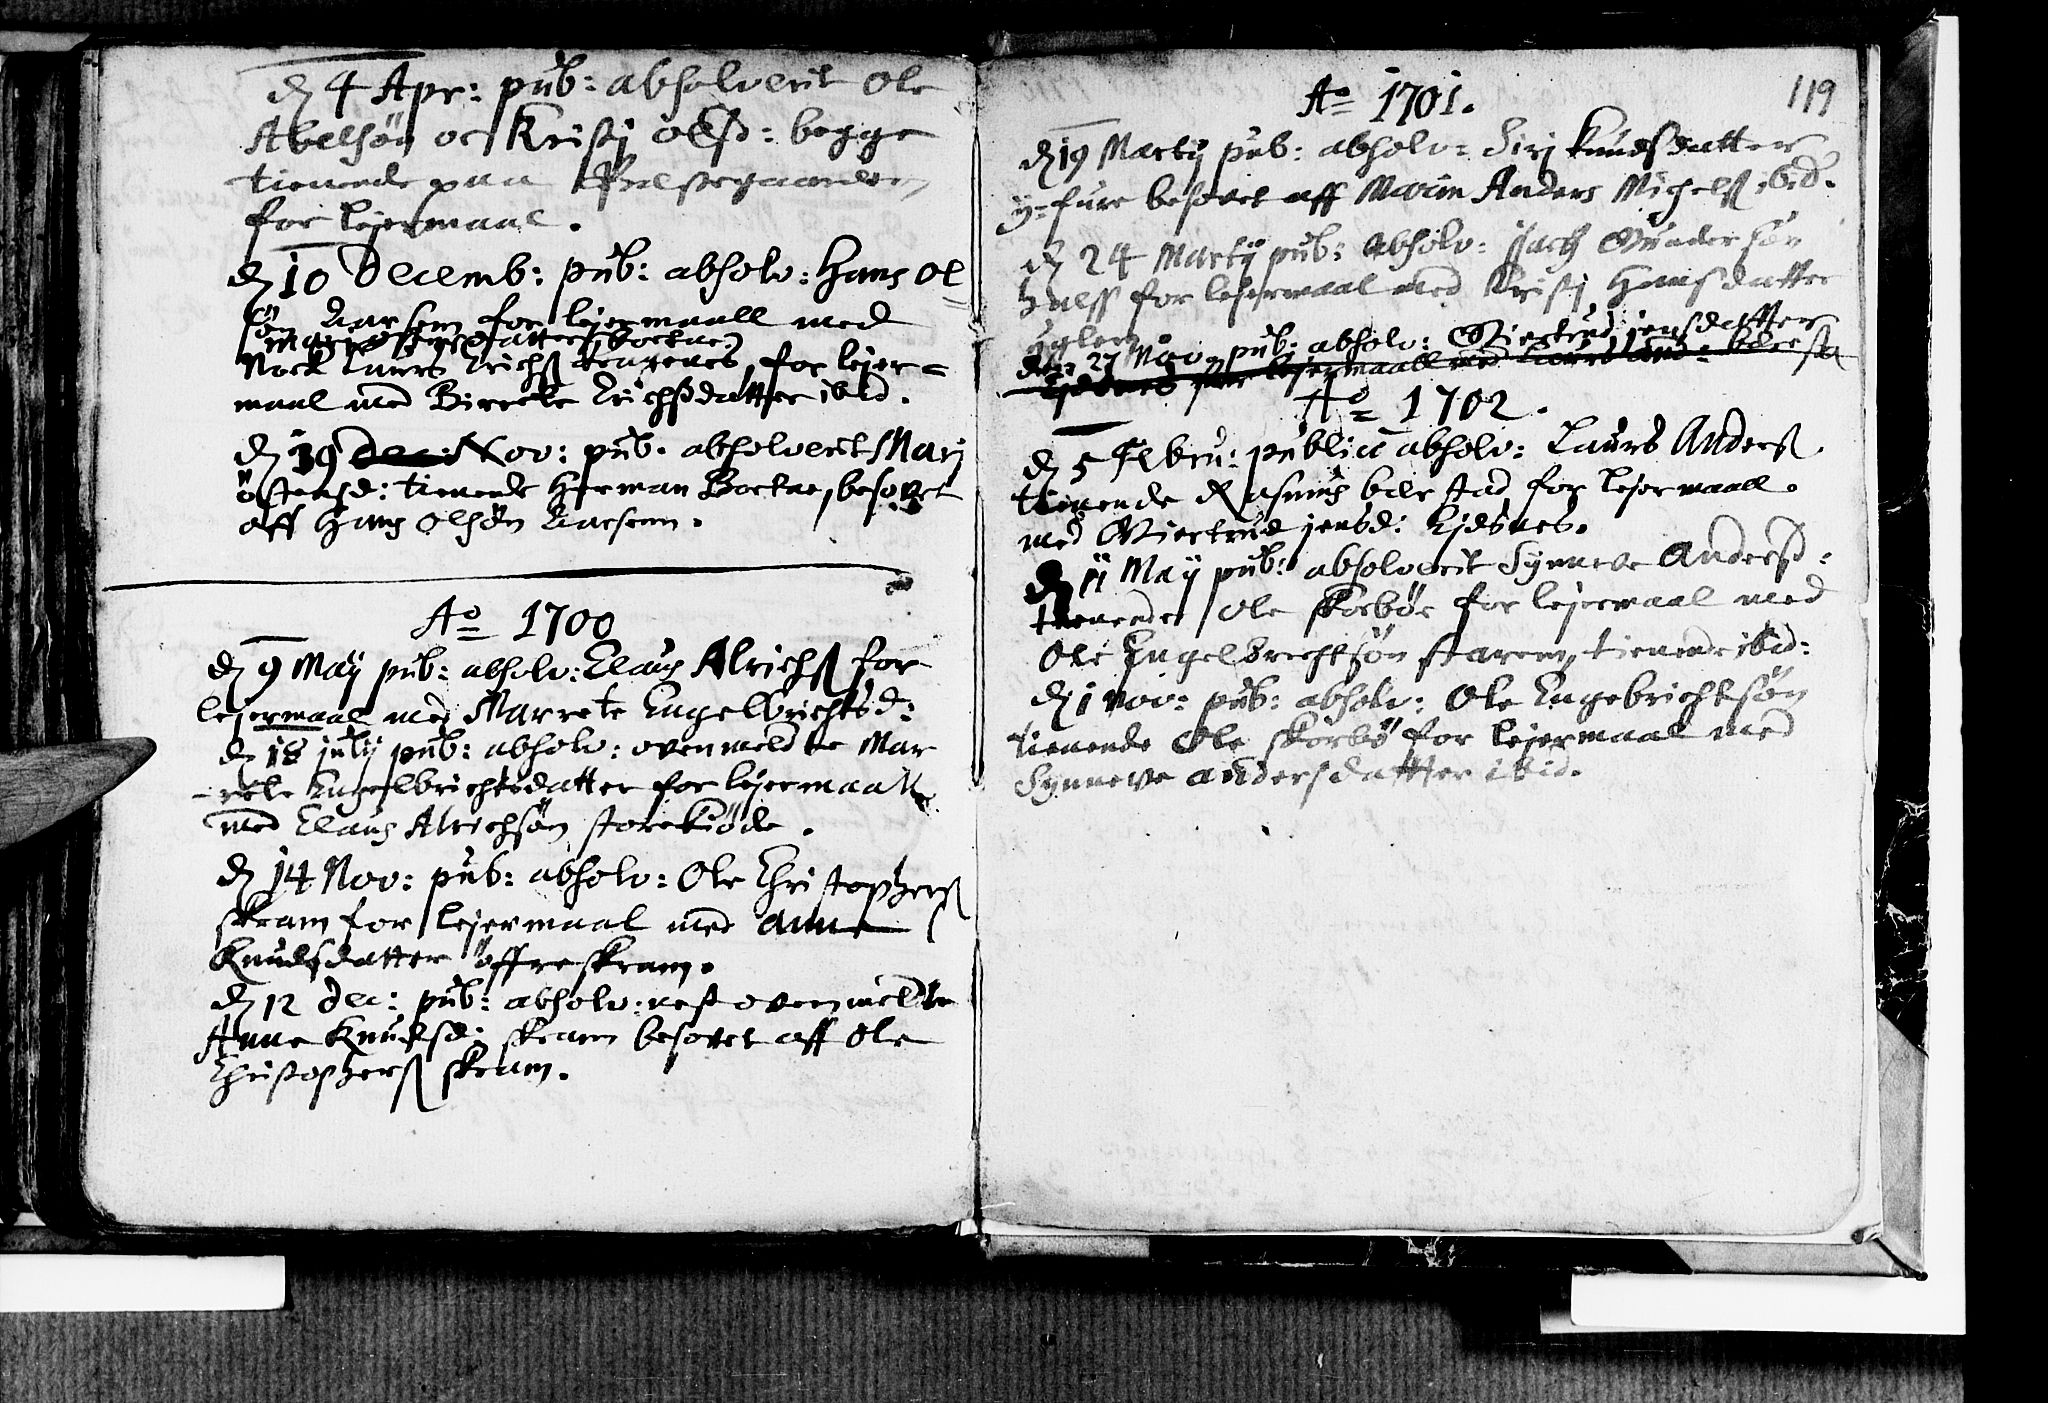 d 4 Apr: pub: absolverit Ole
Abelsøn oc Kristj Olsd: begge
tienende paa
for lejermaal.
d 10 Decemb: pub: absolv: Hans Ol=
søn Aarsem for lejermaall med
Marj Østensdatter Borkne
Nock Laurs Erichs for lejer=
maal med Birrete Erichsdatter ibid.
d 19 Dec: Nov: pub: absolverit Marj
Østensd: tienende Herman Borkne, besovet
aff Hans Olsøn Aarsem.
Ao 1700
d 9 Maij pub: absolv: Claus Alrichs for
lejermaal med Marrete Engelbrichtsd:
d 18 julij pub: absolv: ovenmeldte Mar
rete Engelbrichtsdatter for lejermaall
med Claus Alrichsøn storekiøde.
d 14 Nov: pub: absolv: Ole Christophers
skram for lejermaal med Anne
Knudsdatter øffreskram.
d 12 Dec: pub: absolv: nest ovenmeldte
Anne Knudsd: skram besovet aff Ole
Christophers skram.
119
Ao 1701.
d 19 Martij pub: absolv: Sirj Knudsdatter
y=fure besovet aff Anders Michels ibid.
d 24 Martij pub: absolv: Isach Gundersøn
for lejermaal med Kristj Hansdatter
den 27 Nov: pub: absolv: Giertrud jensdatter
Ejdsnes for lejermaall med Laurs And:
Ao 1702.
d 5 Febru: publicè absolv: Laurs Anders
tienende Rasmus bærstad for lejermaall.
med Giertrud jensd: Ejdsnes.
d 11 Maij pub: absolverit Synneve Andersd:
tienende Ole Skorbø for lejermaal med
Ole Engelbrichtsøn starem, tienende ibid:
d 1 Nov: pub: absolv: Ole Engebrichtsøn
tienende Ole skorbø for lejermaal med
Synneve Andersdatter ibid.